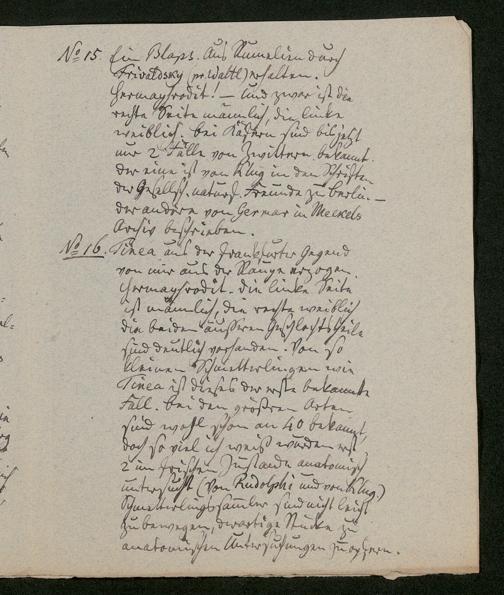 No 15 Ein Blaps. Aus Rumelien durch
Frivaldsky erhalten.
Hermaphrodit! — Und zwar ist die
rechte Seite männlich, die linke
weiblich. bei Käfern sind bis jetzt
nur 2 Fälle von Zwittern bekannt.
der eine ist von Klug in den Schriften
der Gesellsch. naturf. Freunde zu Berlin. —
der andere von Germar in Meckels
Archiv beschrieben.
No 16. Tinea aus der Frankfurter Gegend
von mir aus der Raupe erzogen.
Hermaphrodit. die linke Seite
ist männlich, die rechte weiblich
die beiden äußeren Geschlechtstheile
sind deutlich vorhanden. Von so
kleinen Schmetterlingen wie
Tinea ist dieses der erste bekannte
Fall. bei den größren Arten
sind wohl schon an 40 bekannt,
doch so viel ich weiß wurden erst
2 im frischen Zustande anatomisch
untersucht (von Rudolphi und von Klug.)
Schmetterlingssammler sind nicht leicht
zu bewegen, derartige Stücke zu
anatomischen Untersuchungen zu opfern.